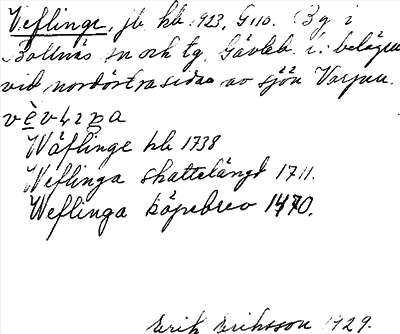 Veflinge, jb hb 1923, G110. By i
Bollnäs sn och tg, Gävleb. l: belägen
vid nordöstra sidan av sjön Varpen.
Wäflinge hb 1738
Weflinga skattelängd 1711.
Weflinga köpebrev 1470.
Erik Eriksson 1929.